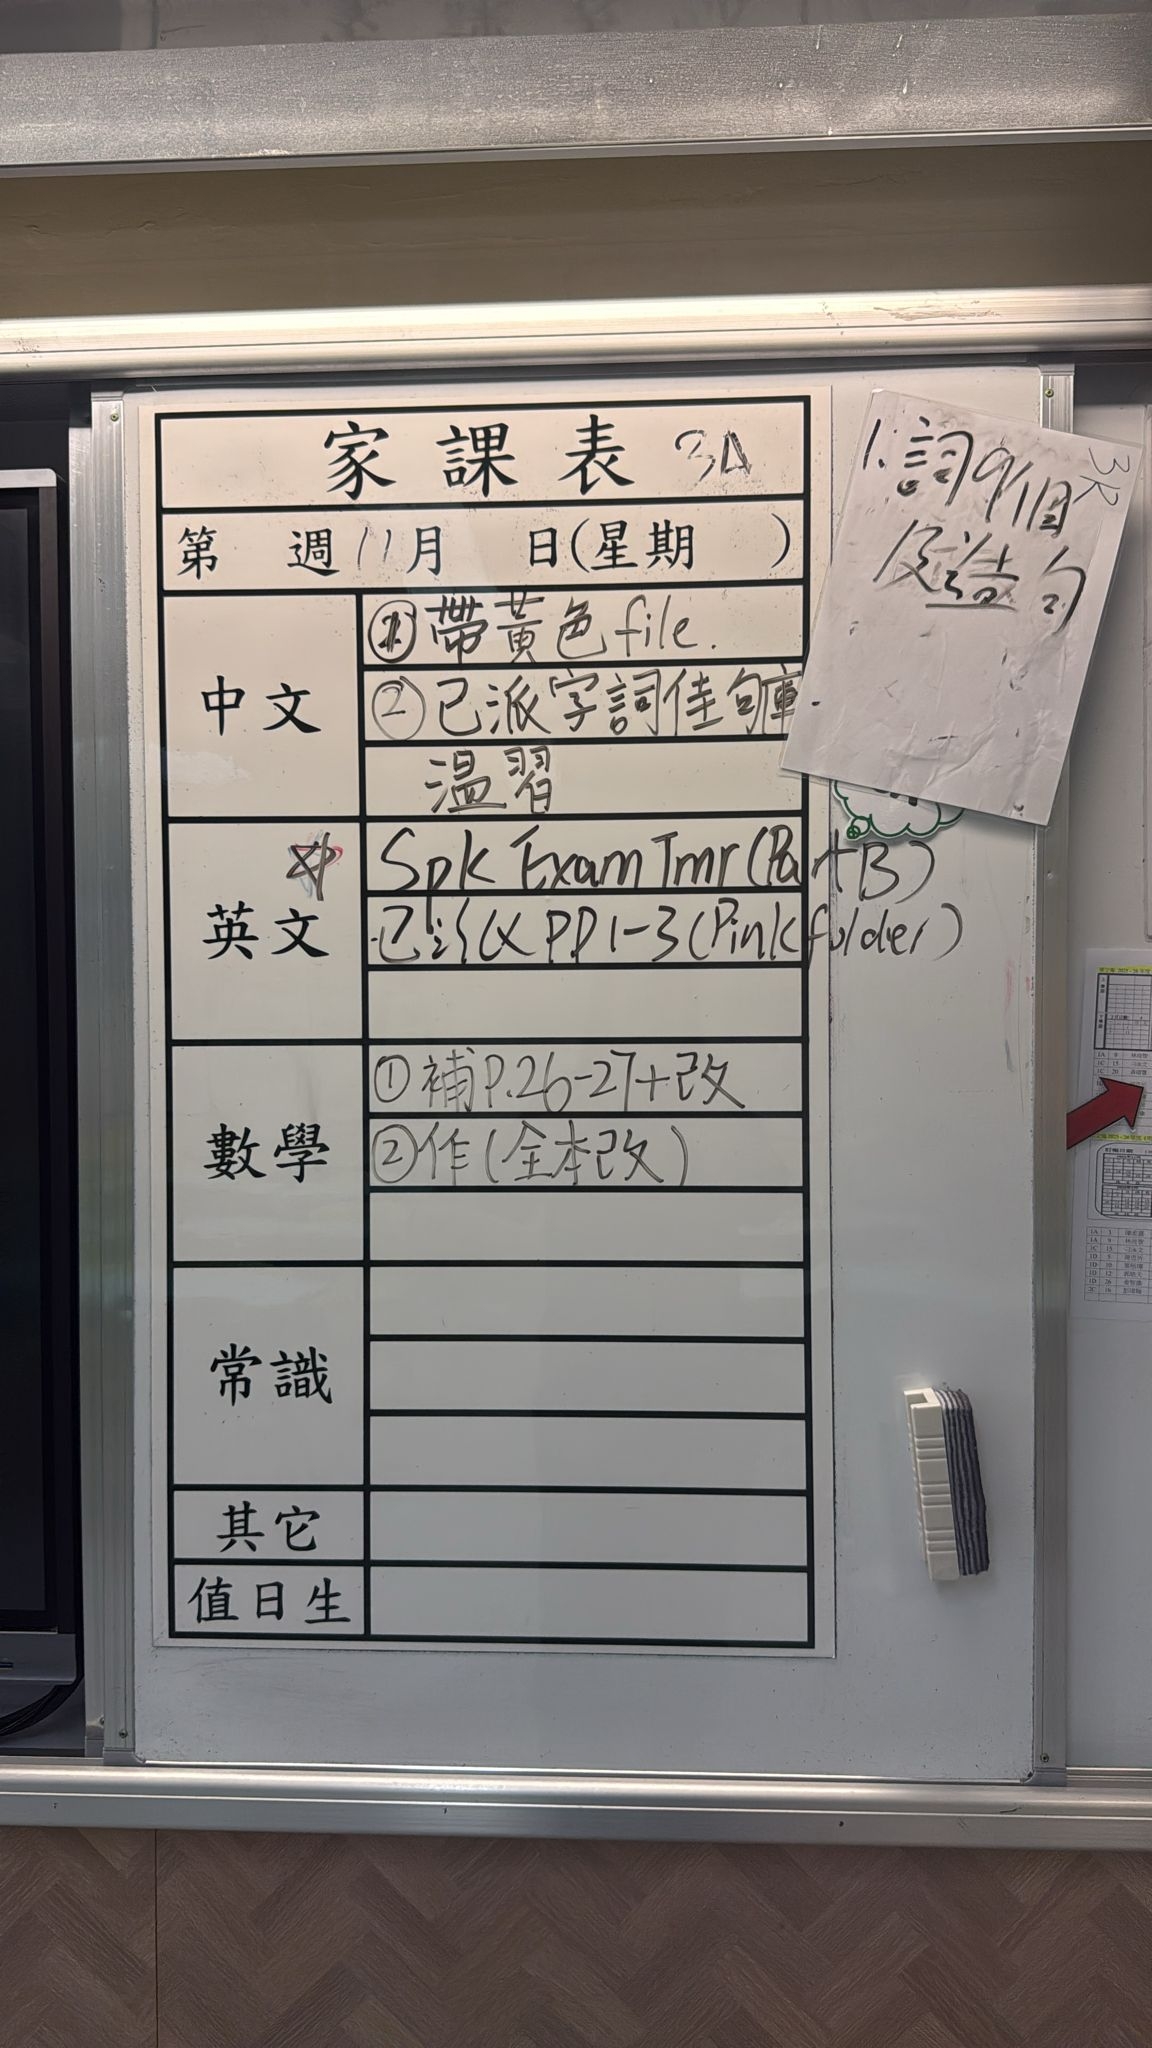 家課表 3A
第 週 11月 日(星期 )
中文
① 帶黃色file.
② 已派字詞佳句庫.
溫習
英文
Spk Exam Tmr (Part B)
已派 PP1-3 (Pink folder)
數學
① 補P.26-27+改
② 作(全本改)
常識
其它
值日生
3R
1. 詞9個
及造句